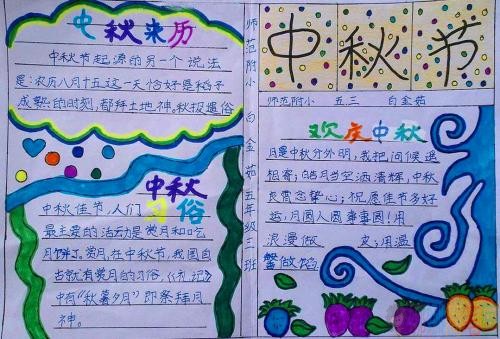 中秋来历
中秋节起源的另一个说法
是:农历八月十五这一天恰好是稻子
成熟的时刻,都拜土地神。秋报遗俗
中秋
习俗
中秋佳节,人们
最主要的活动是赏月和吃
月饼了。赏月,在中秋节,我国自
古就有赏月的习俗,《礼记》
中有“秋暮夕月”即祭拜月
神。
师范附小 白金茹 五年级三班
中秋节
师范附小 五三 白金茹
欢庆中秋
月是中秋分外明,我把问候送
相寄;皓月当空洒清辉,中秋
良宵念挚心;祝愿佳节多好
运,月圆人圆事事圆!用
浪漫做 皮;用温
馨做馅